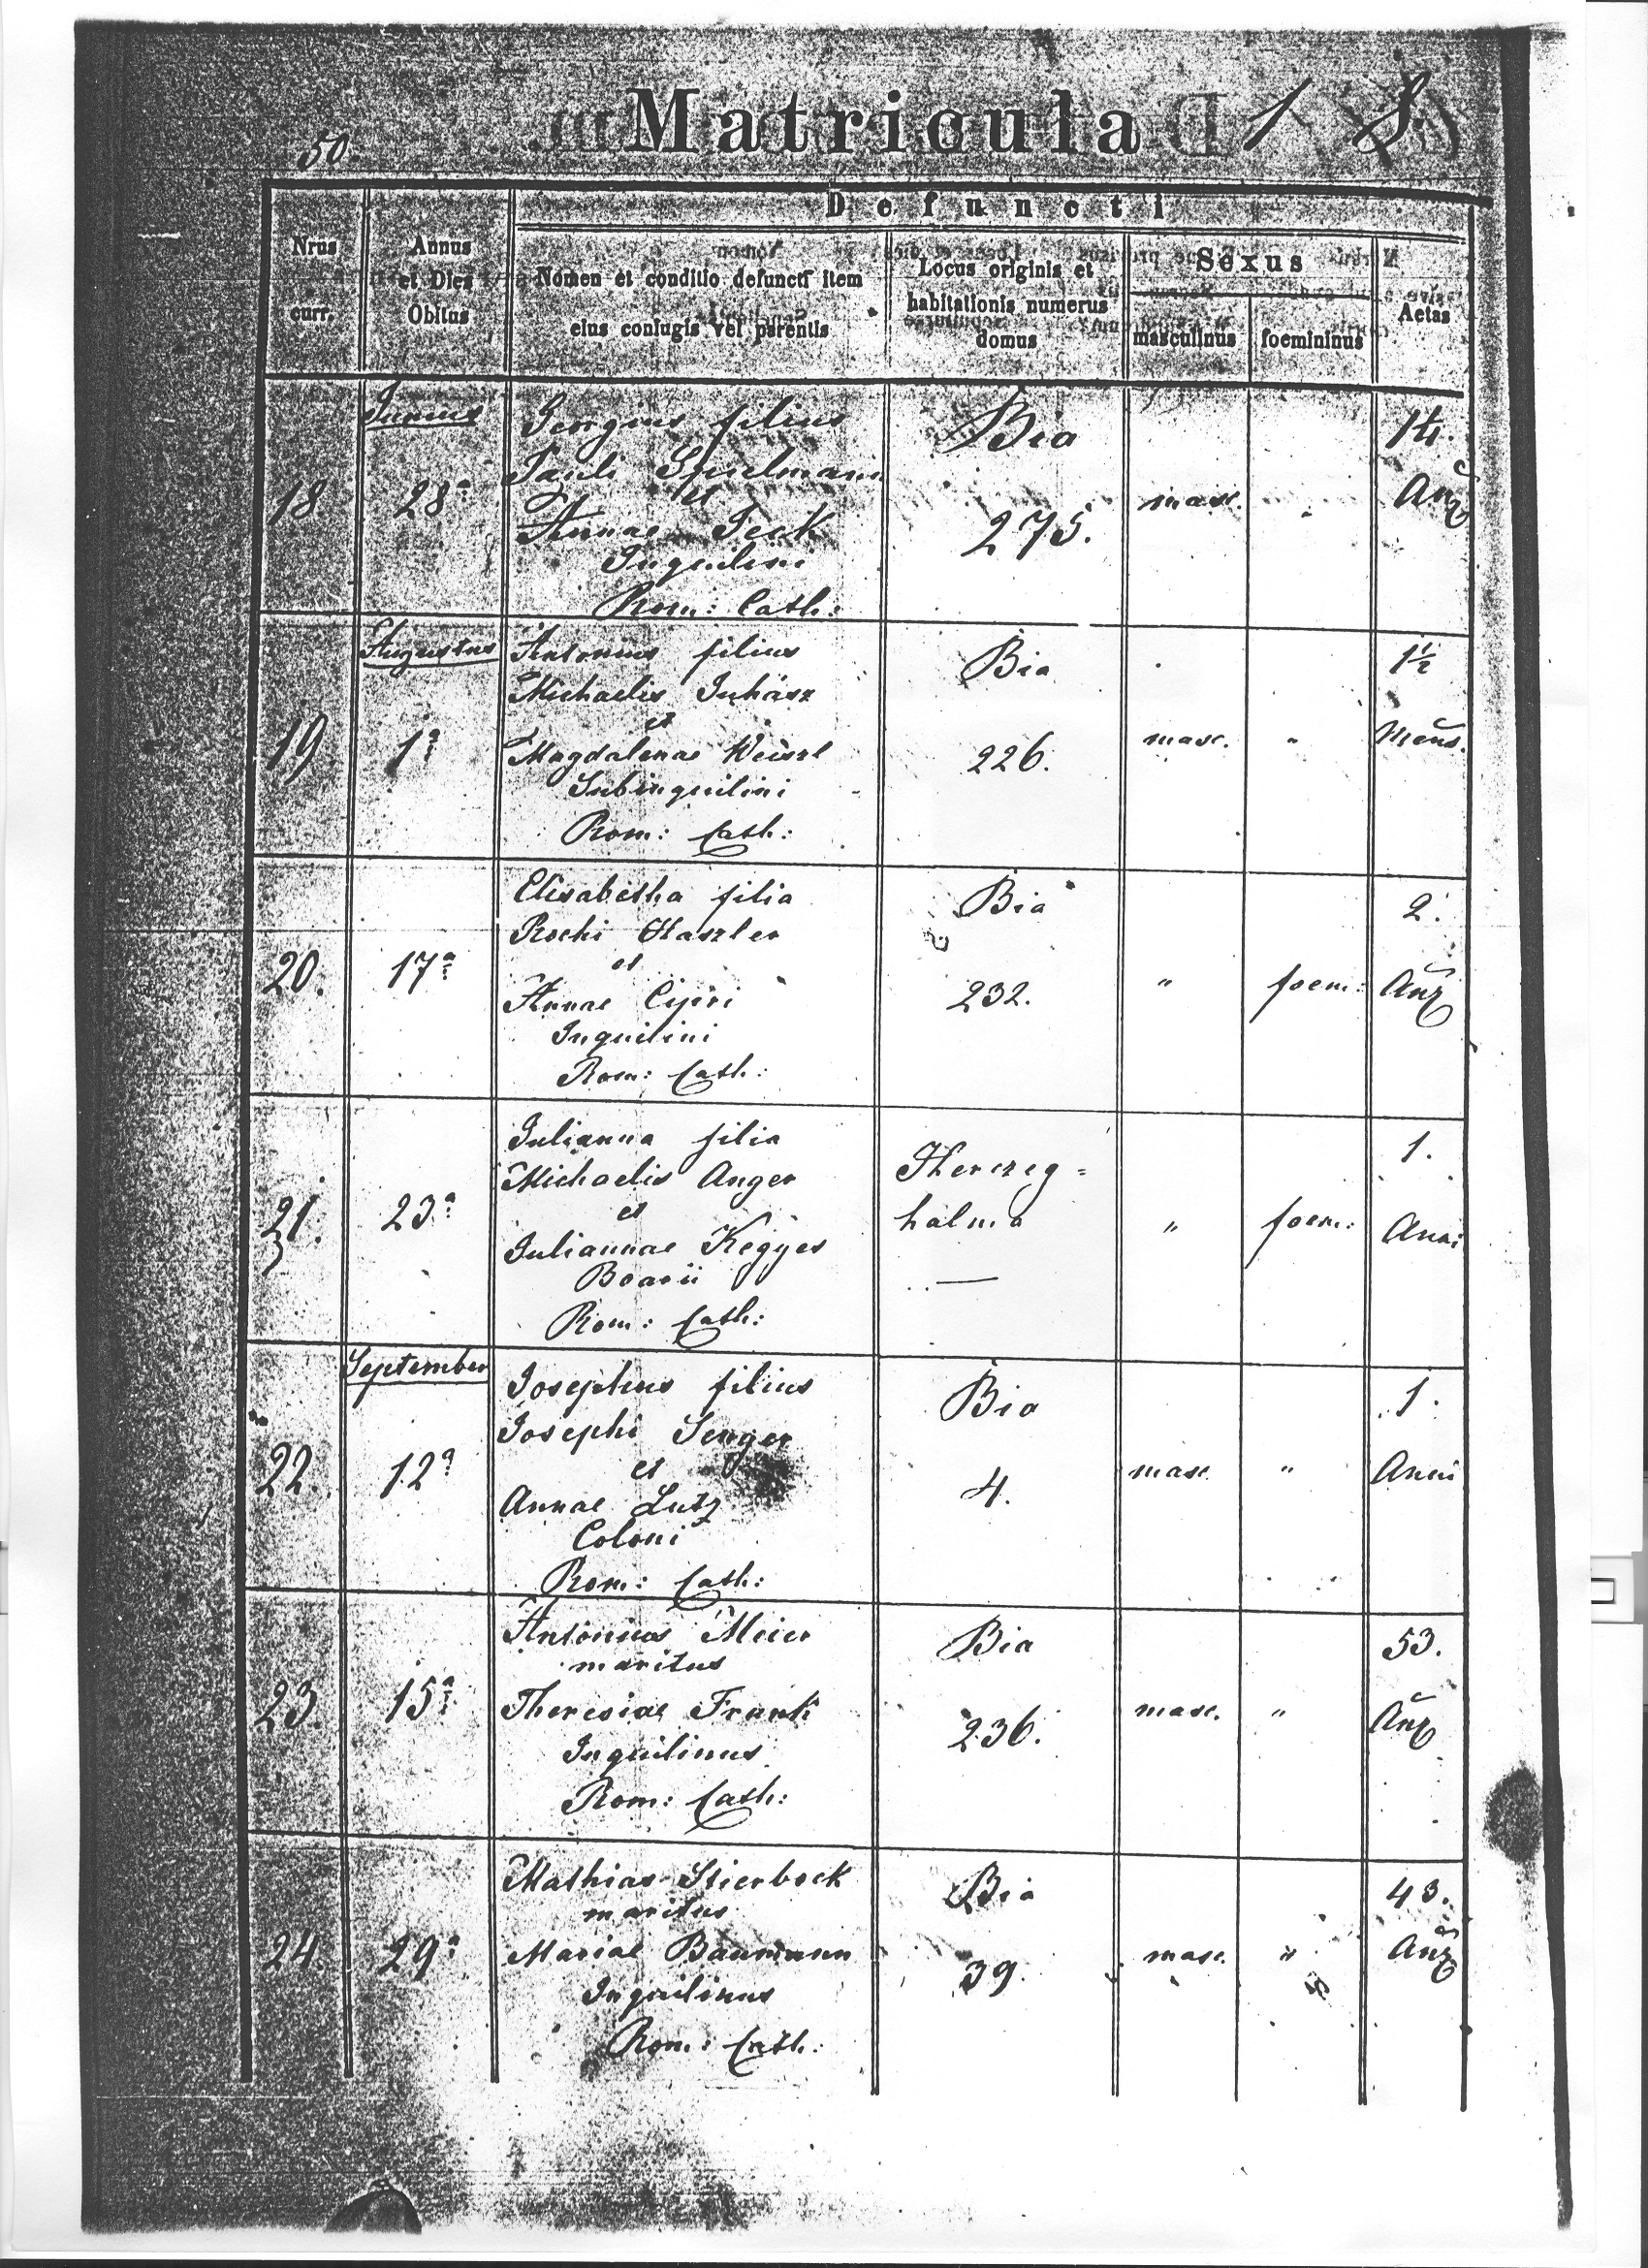 50.
Matricula 1 8.
Defuncti
Nrus
curr.
Annus
et Dies
Obitus
Nomen et conditio defuncti item
eius coniugis vel parentis
Locus originis et
habitationis numerus
domus
Sexus
masculinus
foemininus
Aetas
Junius
18
28a
Georgius filius
Pauli Spielmann
et
Annae Feck
Inquilini
Rom: Cath:
Bia
275.
masc.
"
14.
Augustus
19
1a
Antonius filius
Michaelis Juhász
et
Magdalenae Weiszl
Subinquilini
Rom: Cath:
Bia
226.
masc.
"
1½
Mens.
20.
17a
Elisabetha filia
Rochi Haszler
et
Annae Cipri
Inquilini
Rom: Cath:
Bia
232.
"
foem:
2.
21.
23a
Julianna filia
Michaelis Anger
et
Juliannae Kegyes
Boarii
Rom: Cath:
Herczeg=
halma
—
"
foem:
1.
Anni
September
22.
12a
Josephus filius
Josephi Senger
et
Annae Lutz
Coloni
Rom: Cath:
Bia
4.
masc.
"
1.
Anni
23.
15a
Antonius Meier
maritus
Theresiae Frank
Inquilinus
Rom: Cath:
Bia
236.
masc.
"
53.
24.
29a
Mathias Stierbock
maritus
Mariae Baumann
Inquilinus
Rom: Cath:
Bia
39.
masc.
"
43.